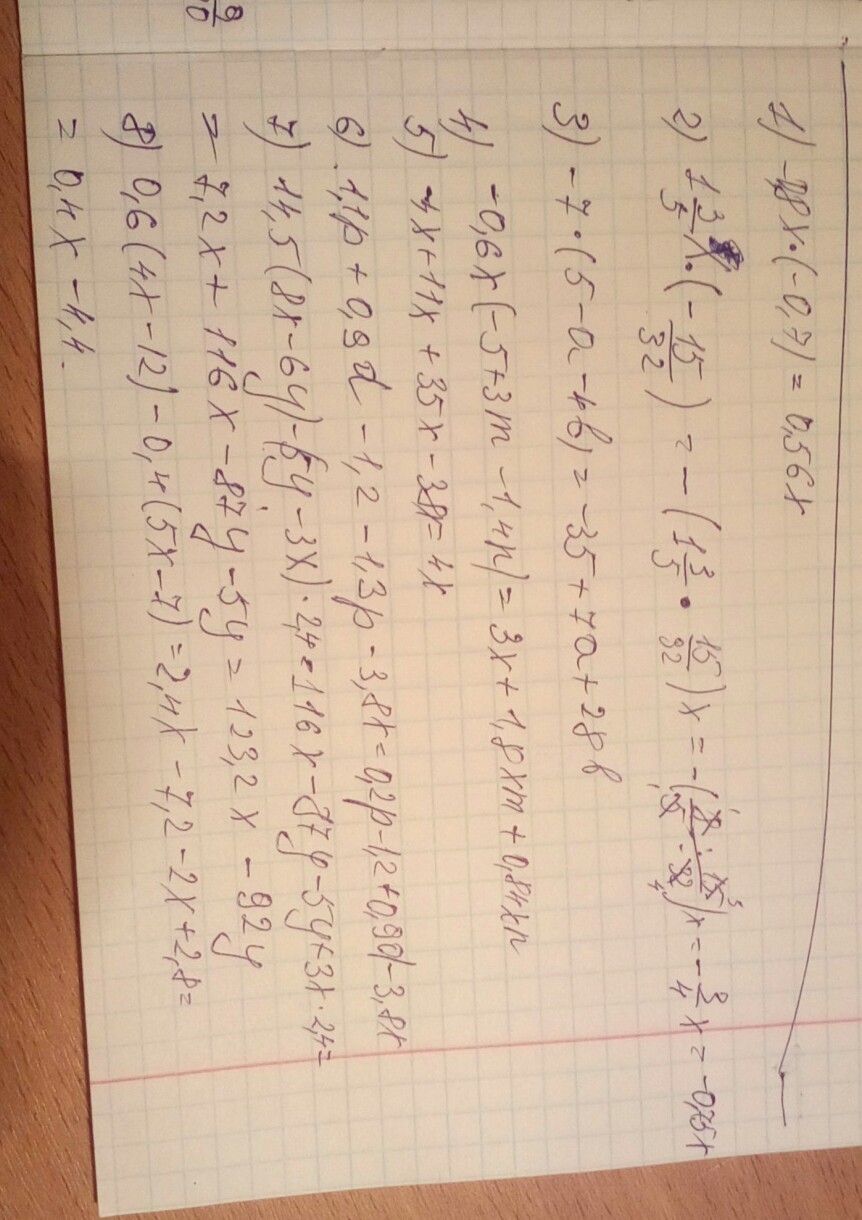 1) -0,8x·(-0,7) = 0,56x
2) 1 3/5 x·(- 15/32) = -(1 3/5 · 15/32)x = -(8·15/5·32)x = -3/4 x = -0,75x
3) -7·(5-a-4b) = -35+7a+28b
4) -0,6x(-5+3m-1,4n) = 3x+1,8xm+0,84xn
5) -4x+11x+35x-38x=4x
6) 1,1p+0,9d-1,2-1,3p-3,8x=0,2p-1,2+0,9d-3,8x
7) 14,5(8x-6y)-(5y-3x)·2,4=116x-87y-5y+3x·2,4=
=7,2x+116x-87y-5y=123,2x-92y
8) 0,6(4x-12)-0,4(5x-7)=2,4x-7,2-2x+2,8=
=0,4x-4,4.